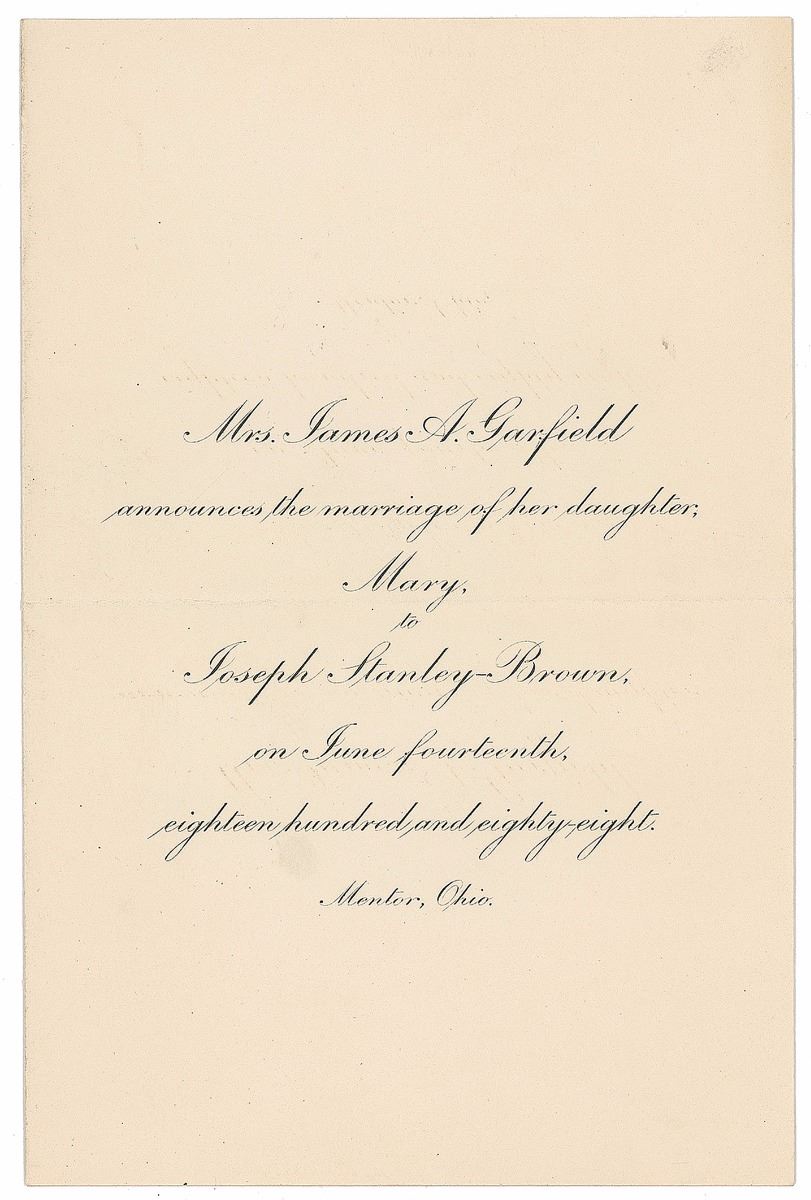 Mrs. James A. Garfield
announces the marriage of her daughter,
Mary,
to
Joseph Stanley-Brown,
on June fourteenth,
eighteen hundred and eighty-eight.
Mentor, Ohio.